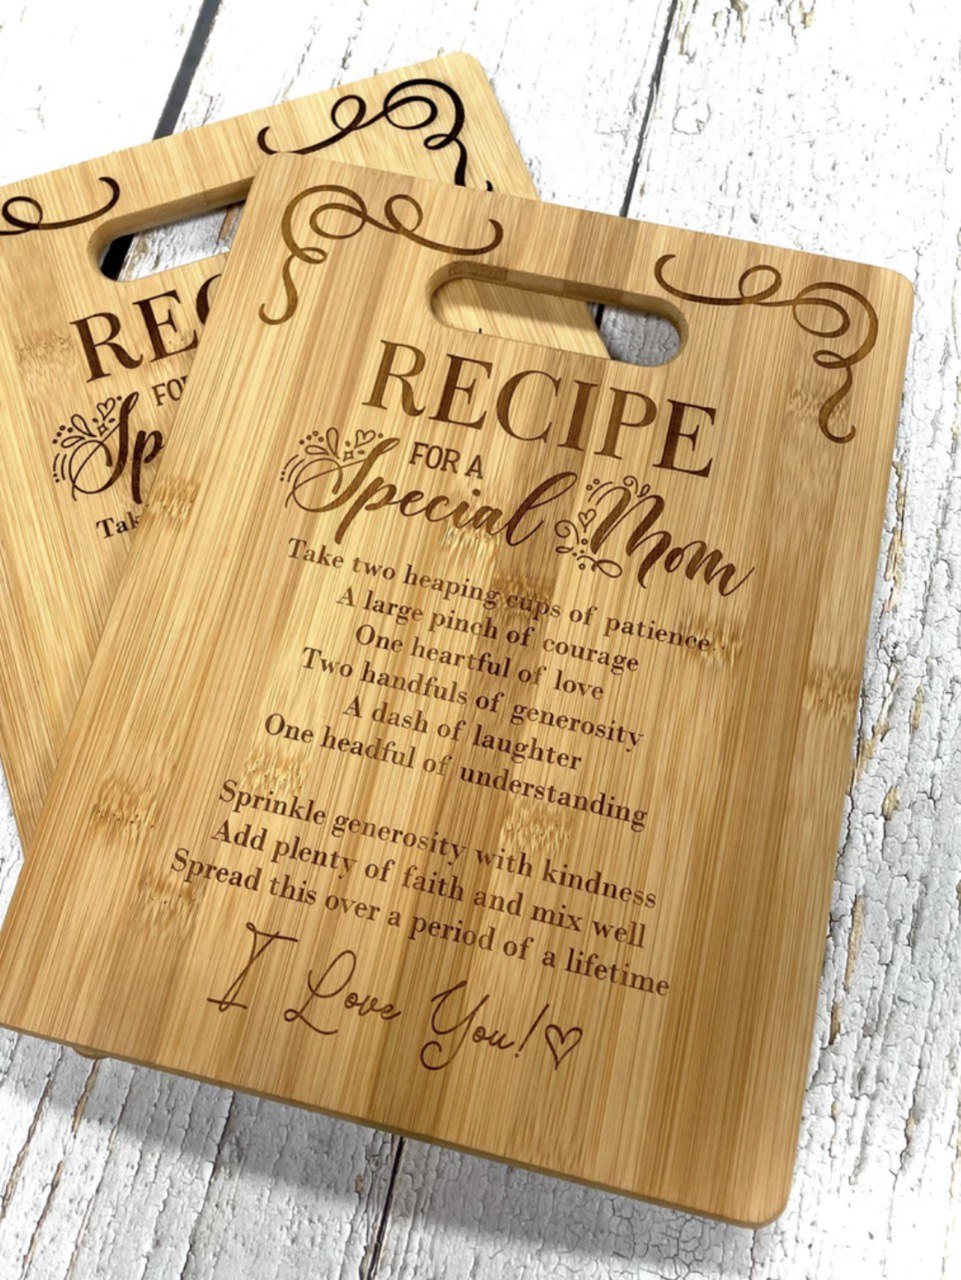 RECIPE
FOR A
Special Mom
Take two heaping cups of patience
A large pinch of courage
One heartful of love
Two handfuls of generosity
A dash of laughter
One headful of understanding
Sprinkle generosity with kindness
Add plenty of faith and mix well
Spread this over a period of a lifetime
I Love You!
REC
FO
Sp
Tak